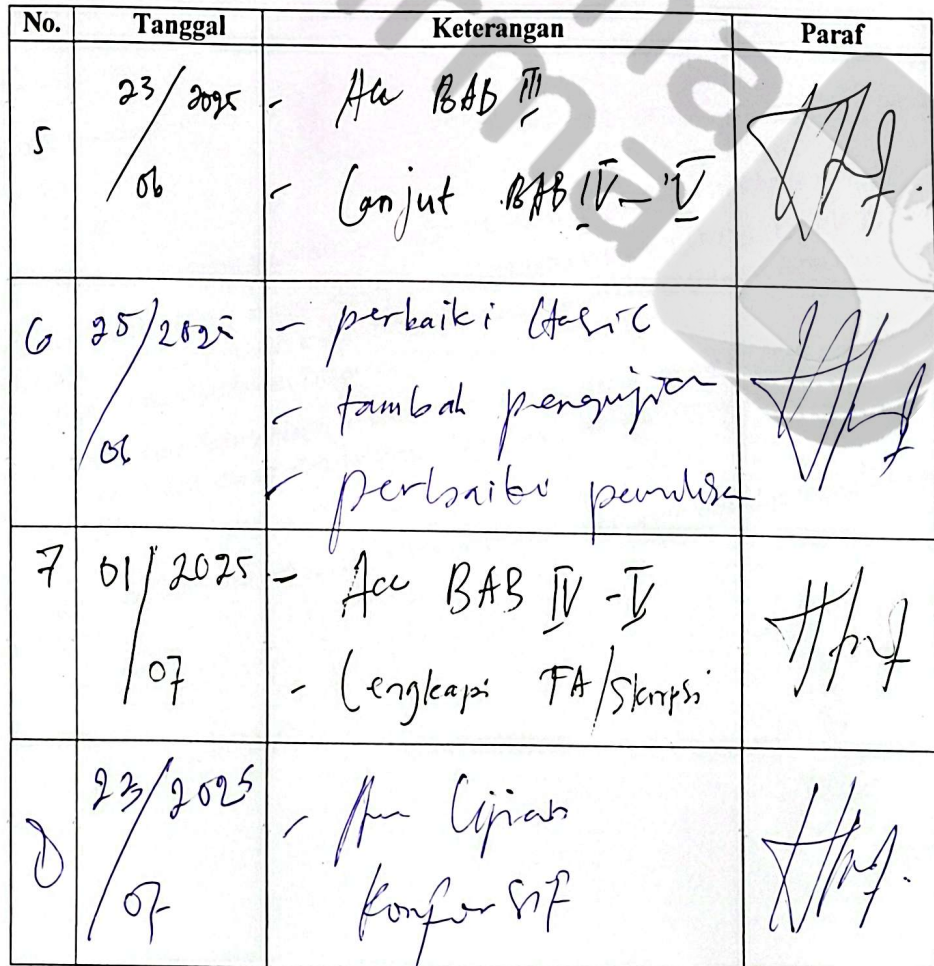 No. Tanggal Keterangan Paraf
5 23/06 2025 - Acc BAB III
- Lanjut BAB IV - V
6 25/06 2025 - perbaiki Hasil
- tambah pengujian
- perbaiki penulisan
7 01/07 2025 - Acc BAB IV - V
- Lengkapi TA/Skripsi
8 23/07 2025 - Acc Ujian